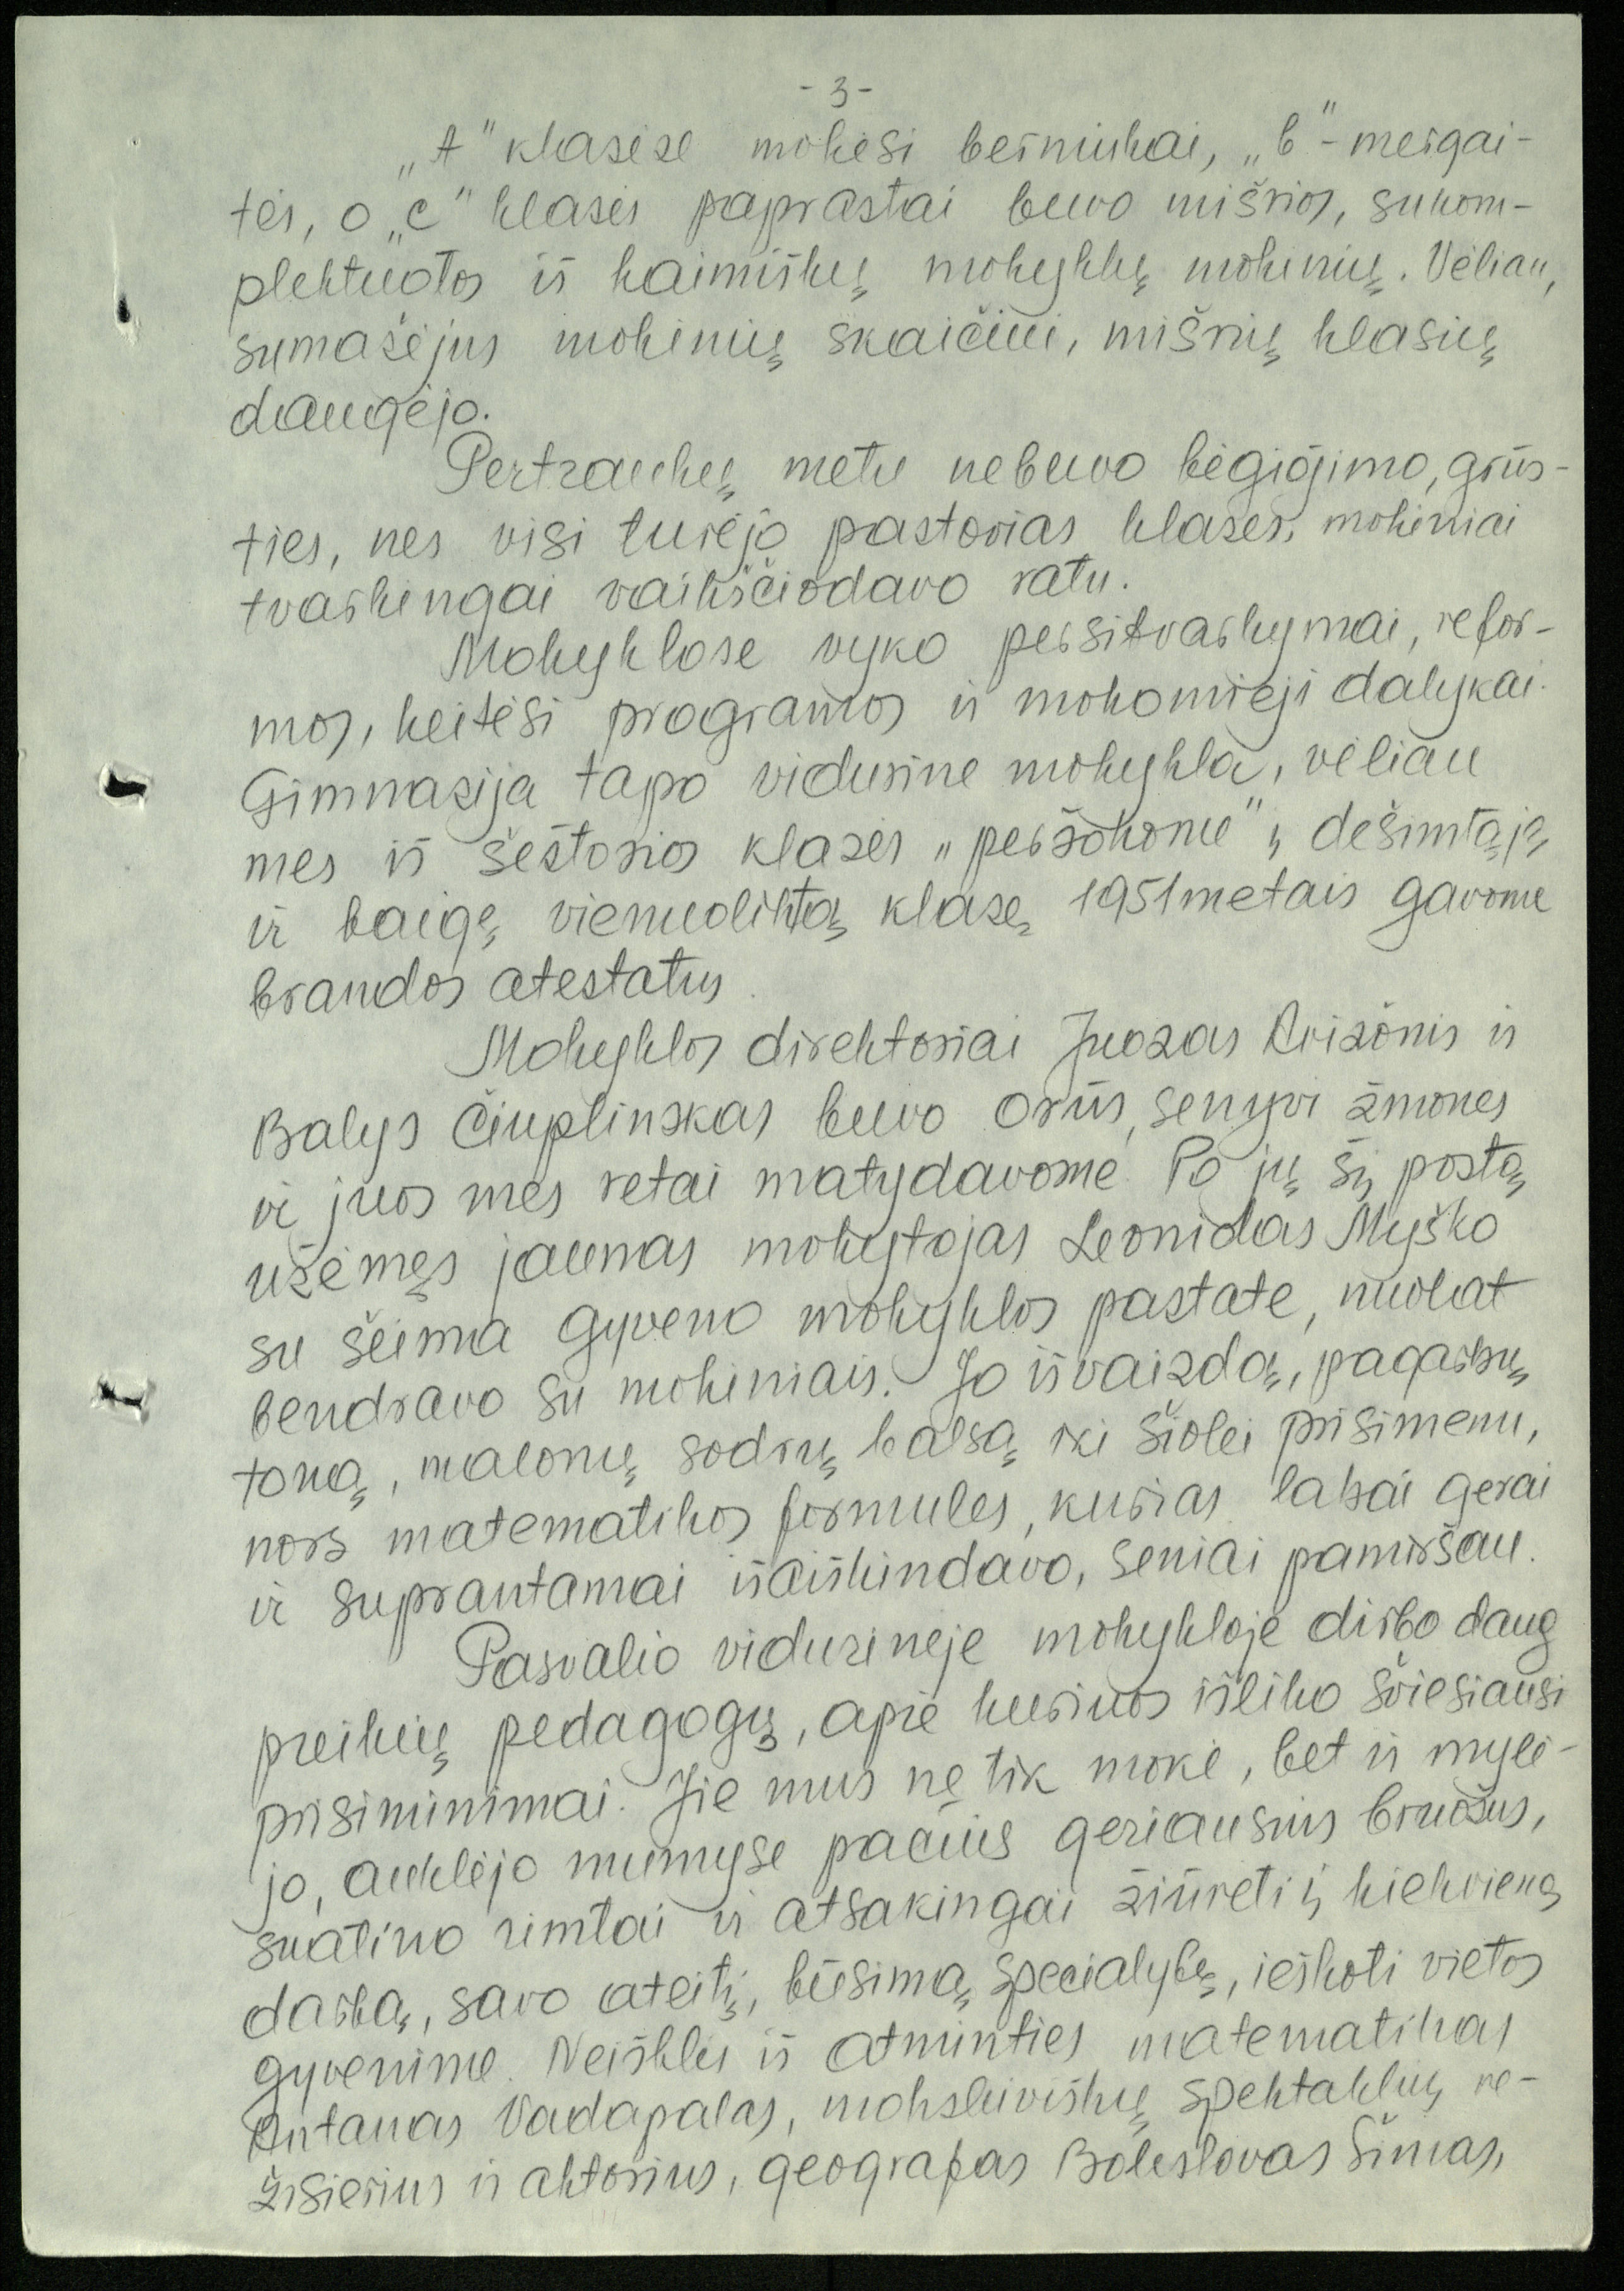 - 3 -
„A" klasėse mokėsi berniukai, „b" - mergai-
tės, o „c" klasės paprastai buvo mišrios, sukom-
plektuotos iš kaimiškų mokyklų mokinių. Vėliau,
sumažėjus mokinių skaičiui, mišrių klasių
daugėjo.
Pertraukų metu nebuvo bėgiojimo, grūs-
ties, nes visi turėjo pastovias klases, mokiniai
tvarkingai vaikščiodavo ratu.
Mokyklose vyko persitvarkymai, refor-
mos, keitėsi programos ir mokomieji dalykai.
Gimnazija tapo vidurine mokykla, vėliau
mes iš šeštosios klasės „peršokome" į dešimtąją
ir baigę vienuoliktą klasę 1951 metais gavome
brandos atestatus.
Mokyklos direktoriai Juozas Avižonis ir
Balys Čiuplinskas buvo orūs, senyvi žmonės
ir juos mes retai matydavome. Po jų šį postą
užėmęs jaunas mokytojas Leonidas Myško
su šeima gyveno mokyklos pastate, nuolat
bendravo su mokiniais. Jo išvaizdą, pagarbų
toną, malonų sodrų balsą iki šiolei prisimenu,
nors matematikos formules, kurias labai gerai
ir suprantamai išaiškindavo, seniai pamiršau.
Pasvalio vidurinėje mokykloje dirbo daug
puikių pedagogų, apie kuriuos išliko šviesiausi
prisiminimai. Jie mus ne tik mokė, bet ir mylė-
jo, auklėjo mumyse pačius geriausius bruožus,
skatino rimtai ir atsakingai žiūrėti į kiekvieną
darbą, savo ateitį, būsimą specialybę, ieškoti vietos
gyvenime. Neišklis iš atminties matematikas
Antanas Vadapalas, moksleiviškų spektaklių re-
žisierius ir aktorius, geografas Boleslovas Šimas,